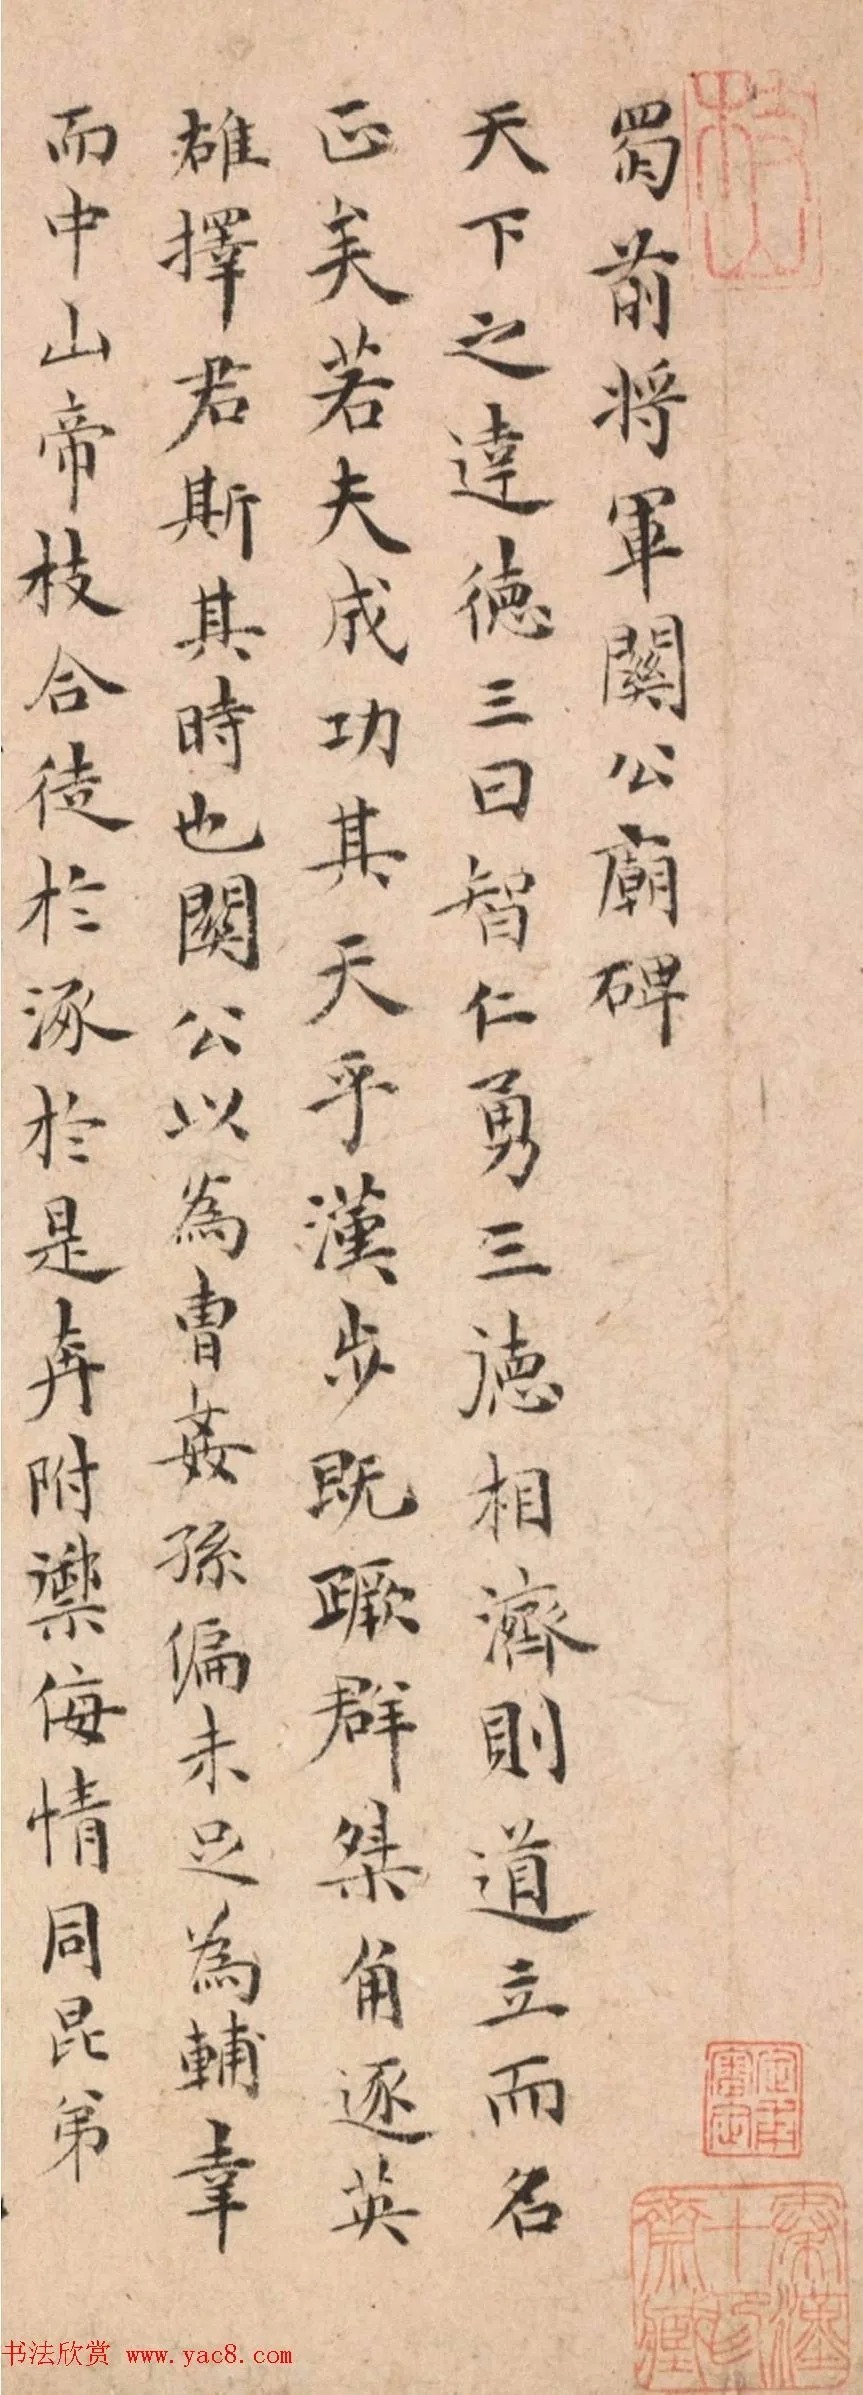 蜀前将軍關公廟碑
天下之達德三曰智仁勇三德相濟則道立而名
正矣若夫成功其天乎漢步既蹶群桀角逐英
雄擇君斯其時也關公以為曹姦孫偏未足為輔幸
而中山帝枝合徒於涿於是奔附禦侮情同昆弟
枝山
书法欣赏 www.yac8.com